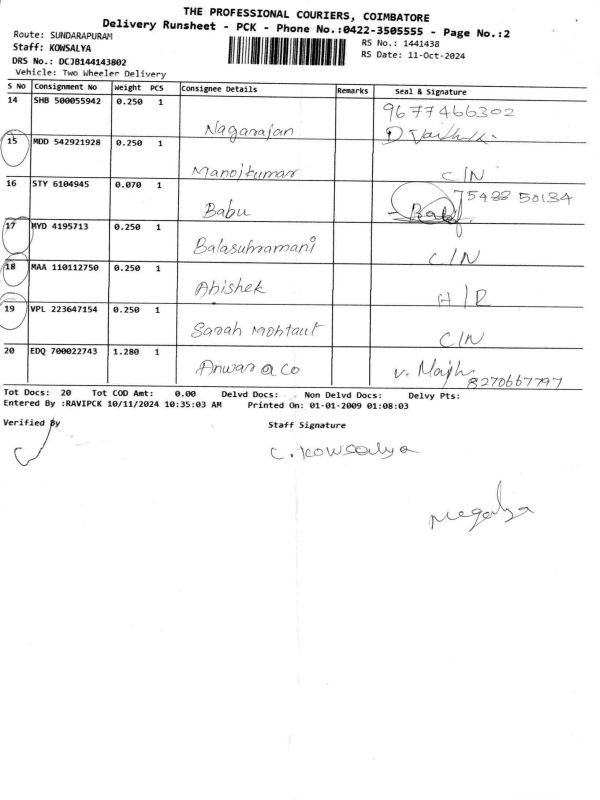 THE PROFESSIONAL COURIERS, COIMBATORE
Delivery Runsheet - PCK - Phone No.:0422-3505555 - Page No.:2
Route: SUNDARAPURAM
RS No.: 1441438
Staff: KOWSALYA
RS Date: 11-Oct-2024
DRS No.: DCJB144143802
Vehicle: Two Wheeler Delivery
S No Consignment No Weight PCS Consignee Details Remarks Seal & Signature
14 SHB 500055942 0.250 1 Nagarajan 9677466302
15 MDD 542921928 0.250 1 Manojkumar C/N
16 STY 6104945 0.070 1 Babu Babu 75488 50134
17 MYD 4195713 0.250 1 Balasubramani C/N
18 MAA 110112750 0.250 1 Abishek H/D
19 VPL 223647154 0.250 1 Sarah C/N
20 EDQ 700022743 1.280 1 Anwar a co 8270667797
Tot Docs: 20 Tot COD Amt: 0.00 Delvd Docs: Non Delvd Docs: Delvy Pts:
Entered By :RAVIPCK 10/11/2024 10:35:03 AM Printed On: 01-01-2009 01:08:03
Verified By
Staff Signature
C. Kowsalya